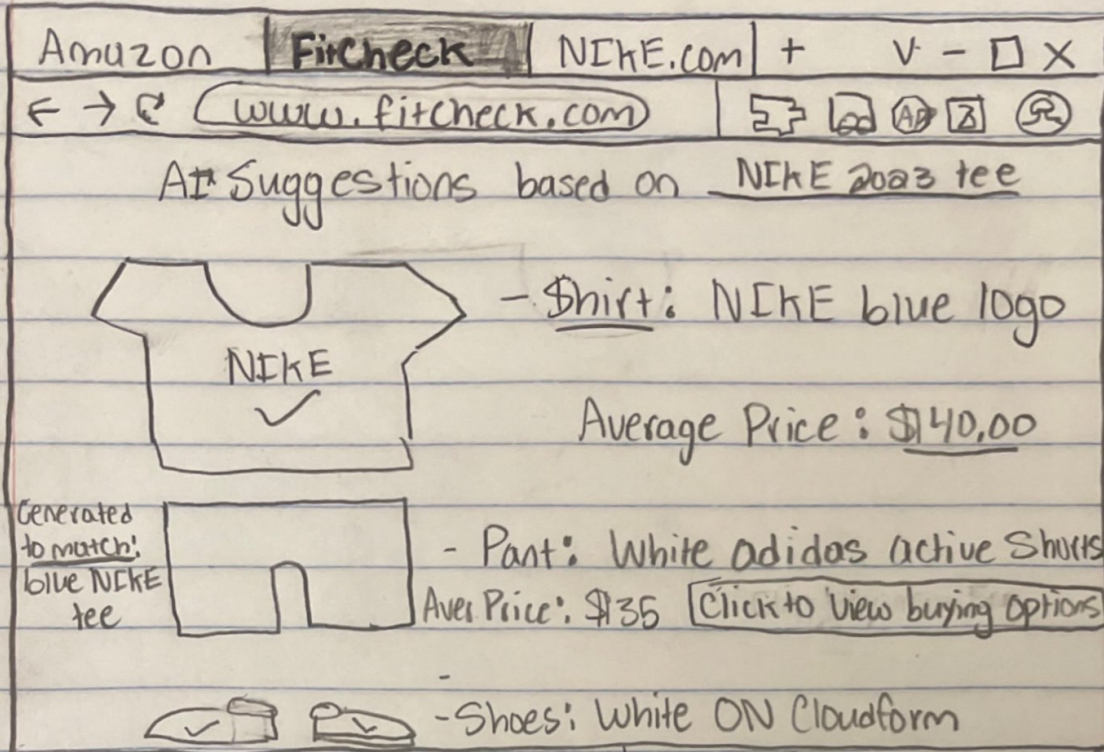 Amazon FitCheck NIKE.com + v - □ X
← → www.fitcheck.com AD
AI Suggestions based on NIKE 2023 tee
- Shirt: NIKE blue logo
NIKE
Average Price: $40.00
Generated
to match:
blue NIKE
tee
- Pant: White adidas active Shorts
Aver Price: $35 Click to View buying options
-
- Shoes: White ON Cloudform